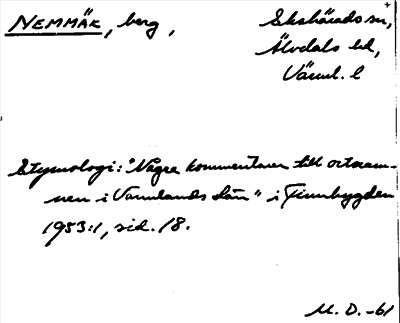 NEMMÄK, berg,
Ekshärads sn,
Älvdals hd,
Värml. l
Etymologi: "Några kommentarer till ortnam-
nen i Värmlands län" i Finnbygden
1953:1, sid. 18.
M. D. -61